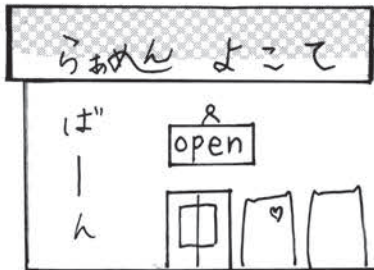 らぁめん よこて
ばーん
open
中